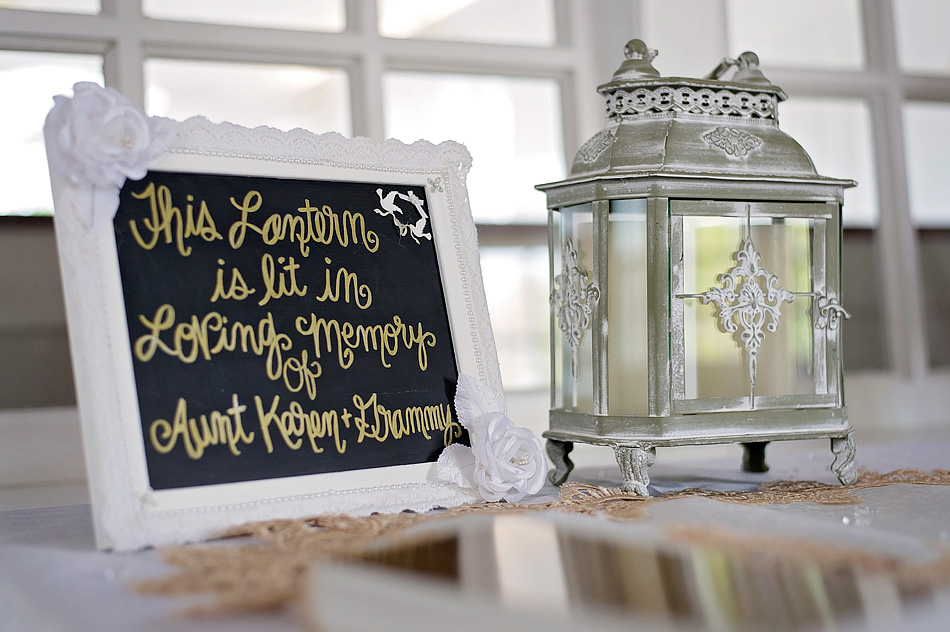 This Lantern
is lit in
Loving Memory
of
Aunt Karen + Grammy